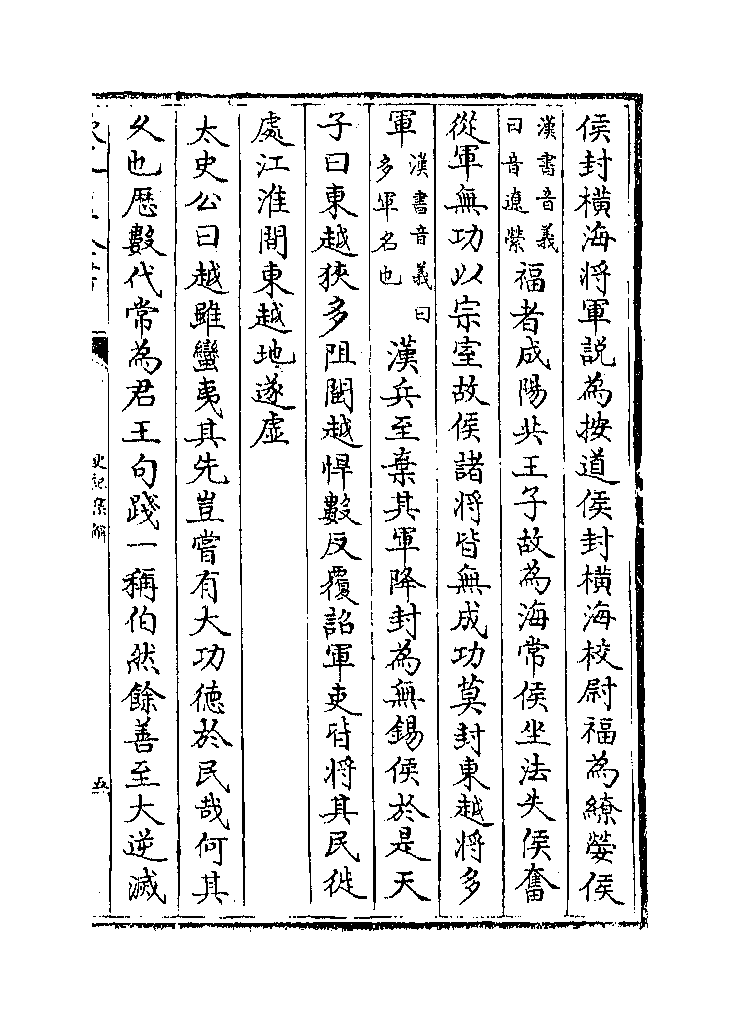 侯封橫海将軍説為按道侯封橫海校尉福為繚嫈侯
漢書音義曰音遼縈福者成陽共王子故為海常侯坐法失侯奮
從軍無功以宗室故侯諸将皆無成功莫封東越将多
軍漢書音義曰多軍名也漢兵至棄其軍降封為無錫侯於是天
子曰東越狹多阻閩越悍數反覆詔軍吏皆将其民徙
處江淮間東越地遂虚
太史公曰越雖蠻夷其先豈嘗有大功德於民哉何其
乆也厯數代常為君王句踐一稱伯然餘善至大逆滅
史記集解
五